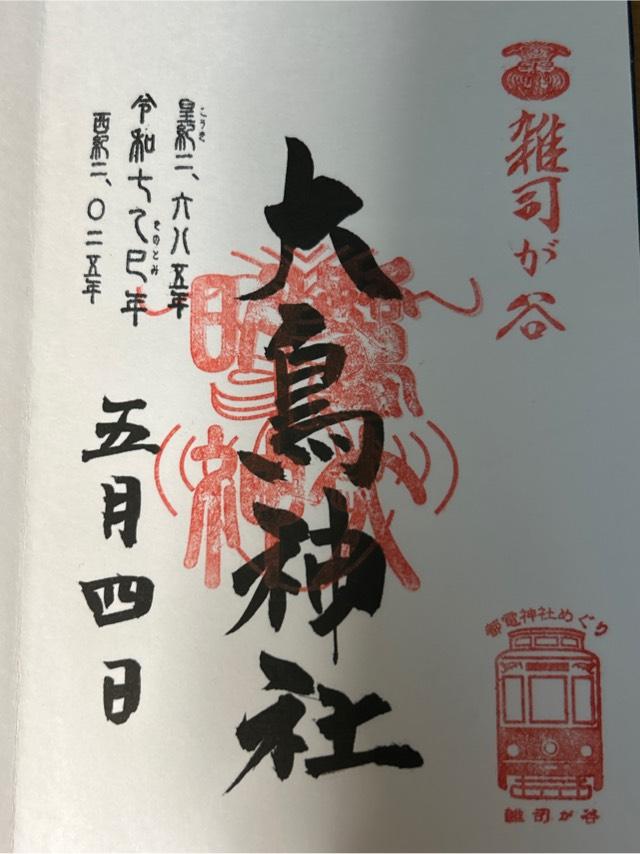 雑司が谷
大鳥神社
皇紀二、六八五年
こうき
令和七乙巳年
きのとみ
西紀二、〇二五年
五月四日
都電神社めぐり
雑司が谷